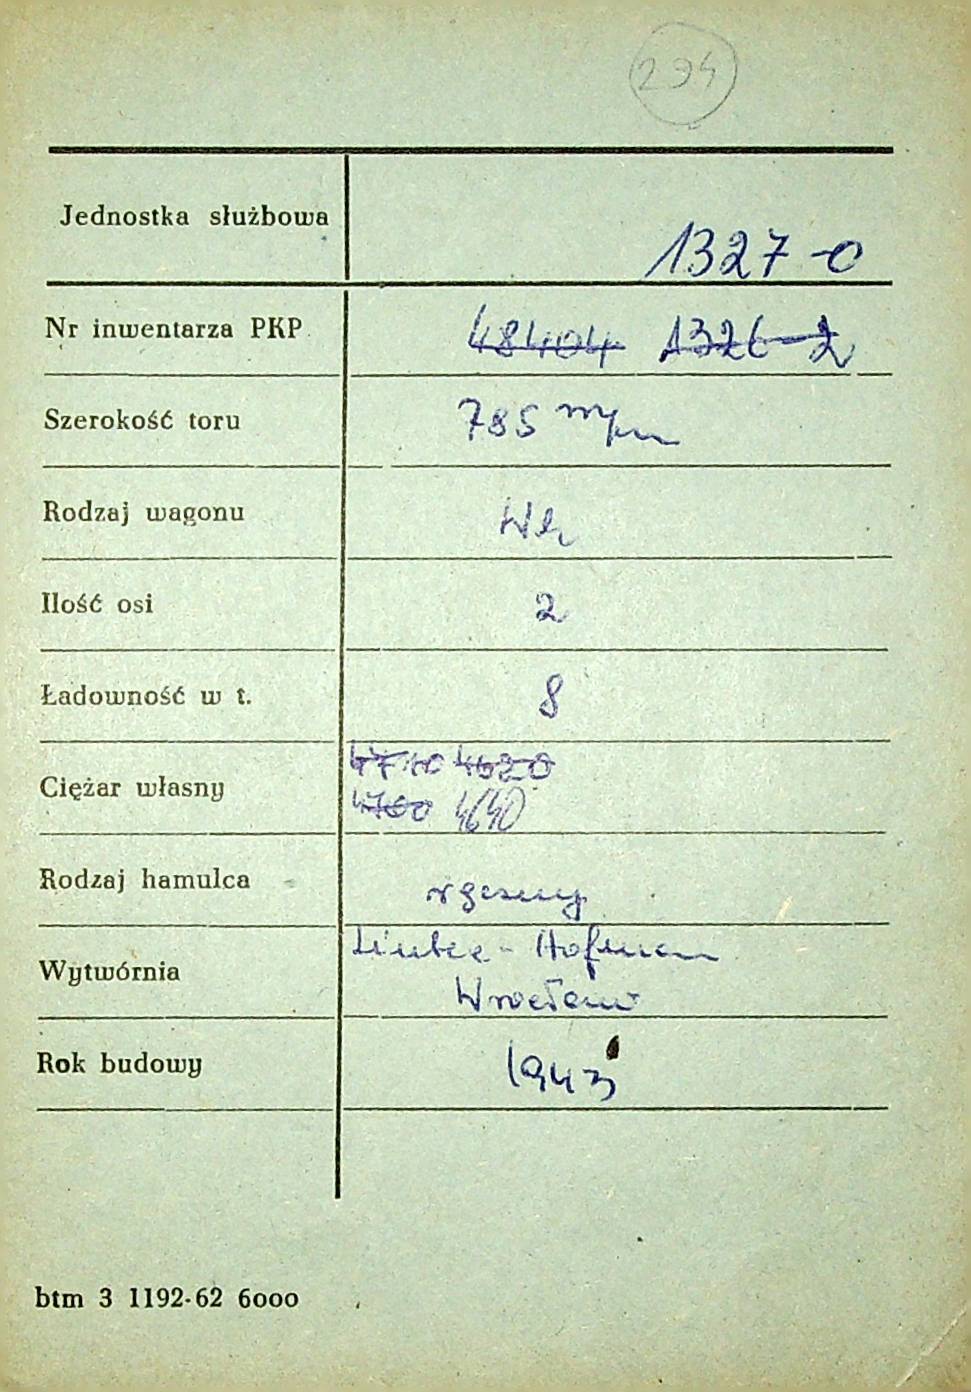 294
Jednostka służbowa
1327-0
Nr inwentarza PKP 48404 1326-2
Szerokość toru 785 m/m
Rodzaj wagonu Wh
Ilość osi 2
Ładowność w t. 8
4710 4620
Ciężar własny
4700 4640
Rodzaj hamulca ręczny
Linke-Hofman
Wytwórnia
Wrocław
Rok budowy 1943
btm 3 1192-62 6000